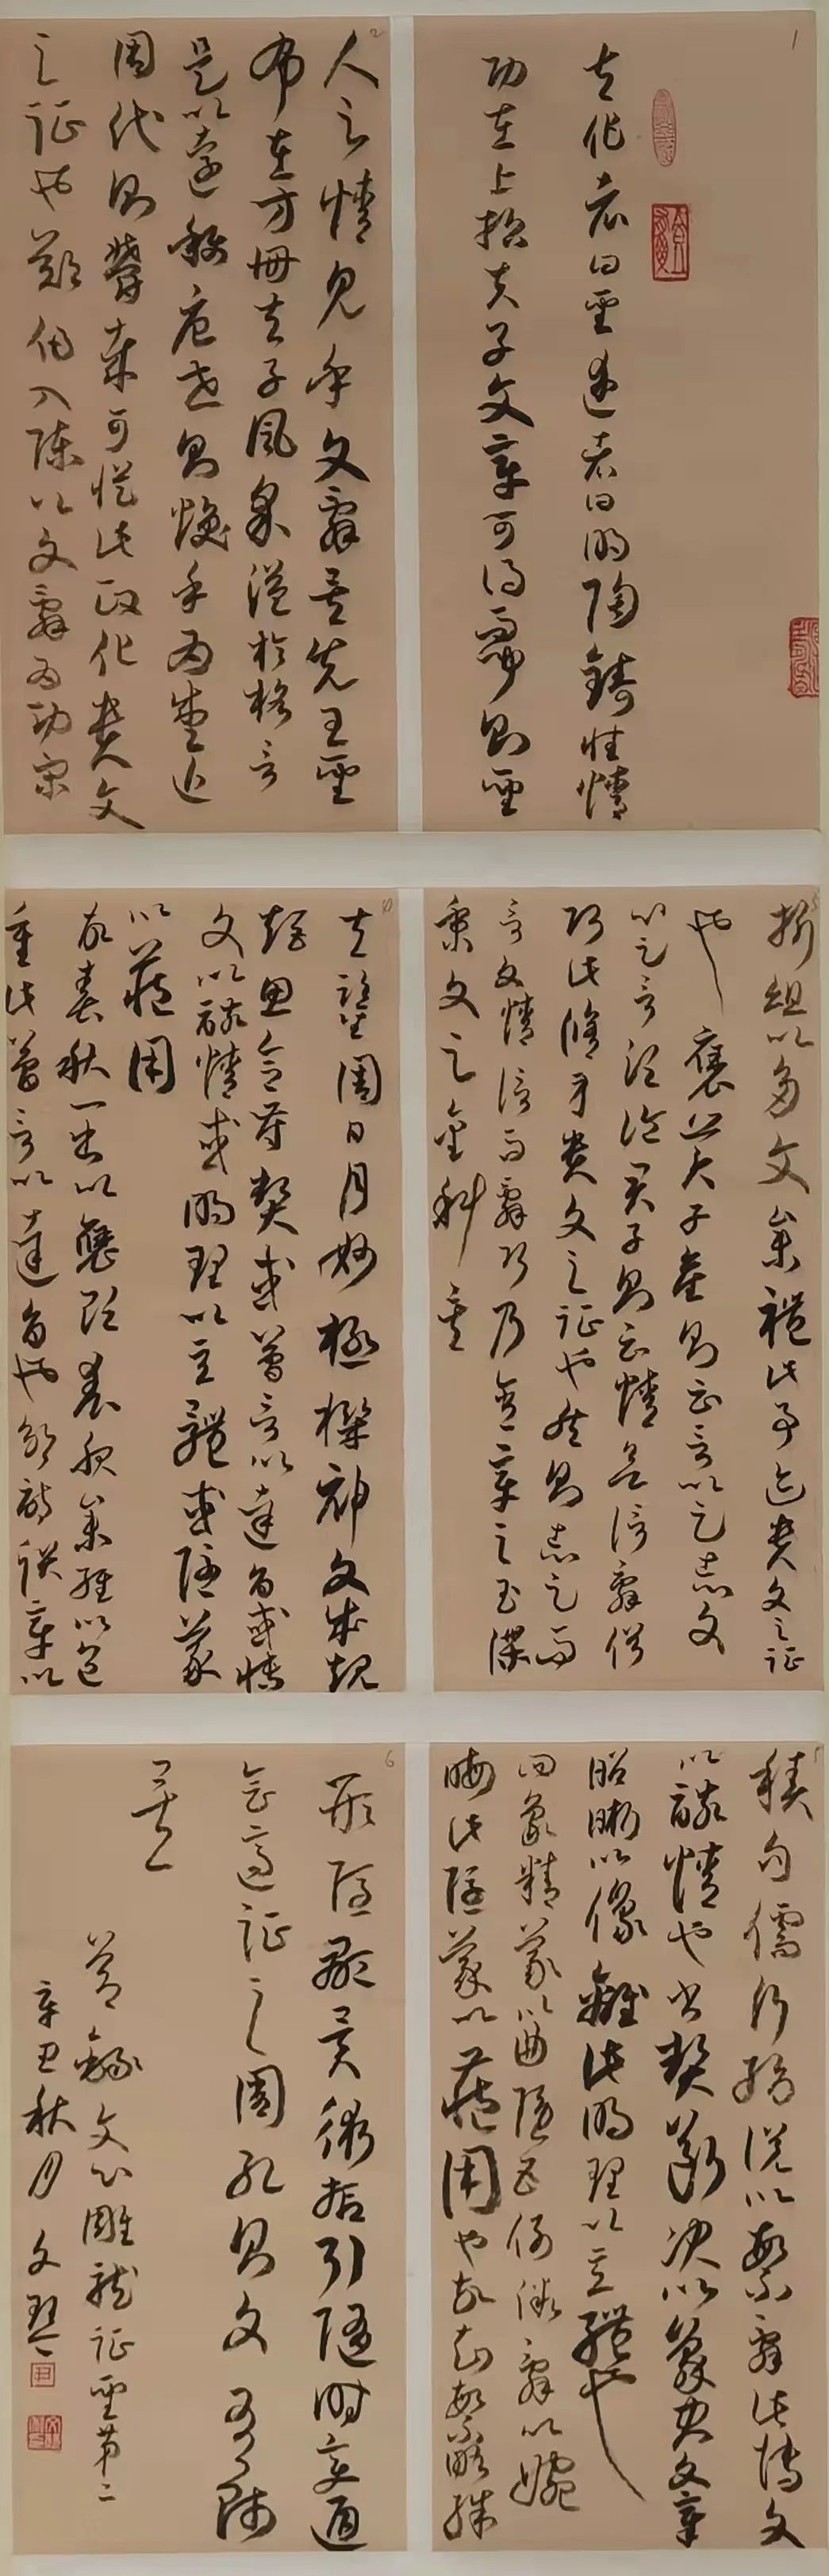 夫作者曰聖述者曰明陶鑄性情
功在上哲夫子文章可得而聞則聖
人之情見乎文辭矣先王聖
布在方冊夫子風采溢於格言
是以遠稱唐世則煥乎為盛近
周代則鬱哉可從此政化貴文
之証也鄭伯入陳以文辭為功宋
折俎以多文舉禮此事迹貴文之証
也褒美子產則云言以足志文
以足言泛論君子則云情欲信辭欲
巧此脩身貴文之証也然則志足而
言文情信而辭巧乃含章之玉牒
秉文之金科矣
夫鑒周日月妙極機神文成規
矩思合符契或簡言以達旨或博
文以該情或明理以立體或隱義
以藏用
故春秋一字以褒貶喪服舉輕以包
重此簡言以達旨也邠詩聯章以
積句儒行縟說以繁辭此博文
以該情也書契斷決以象夬文章
昭晰以像離此明理以立體也
四象精義以曲隱五例微辭以婉
晦此隱義以藏用也故知繁略殊
形隱顯異術抑引隨時變通
會適証之周孔則文有師
矣
文心雕龍証聖第二
辛丑秋月文